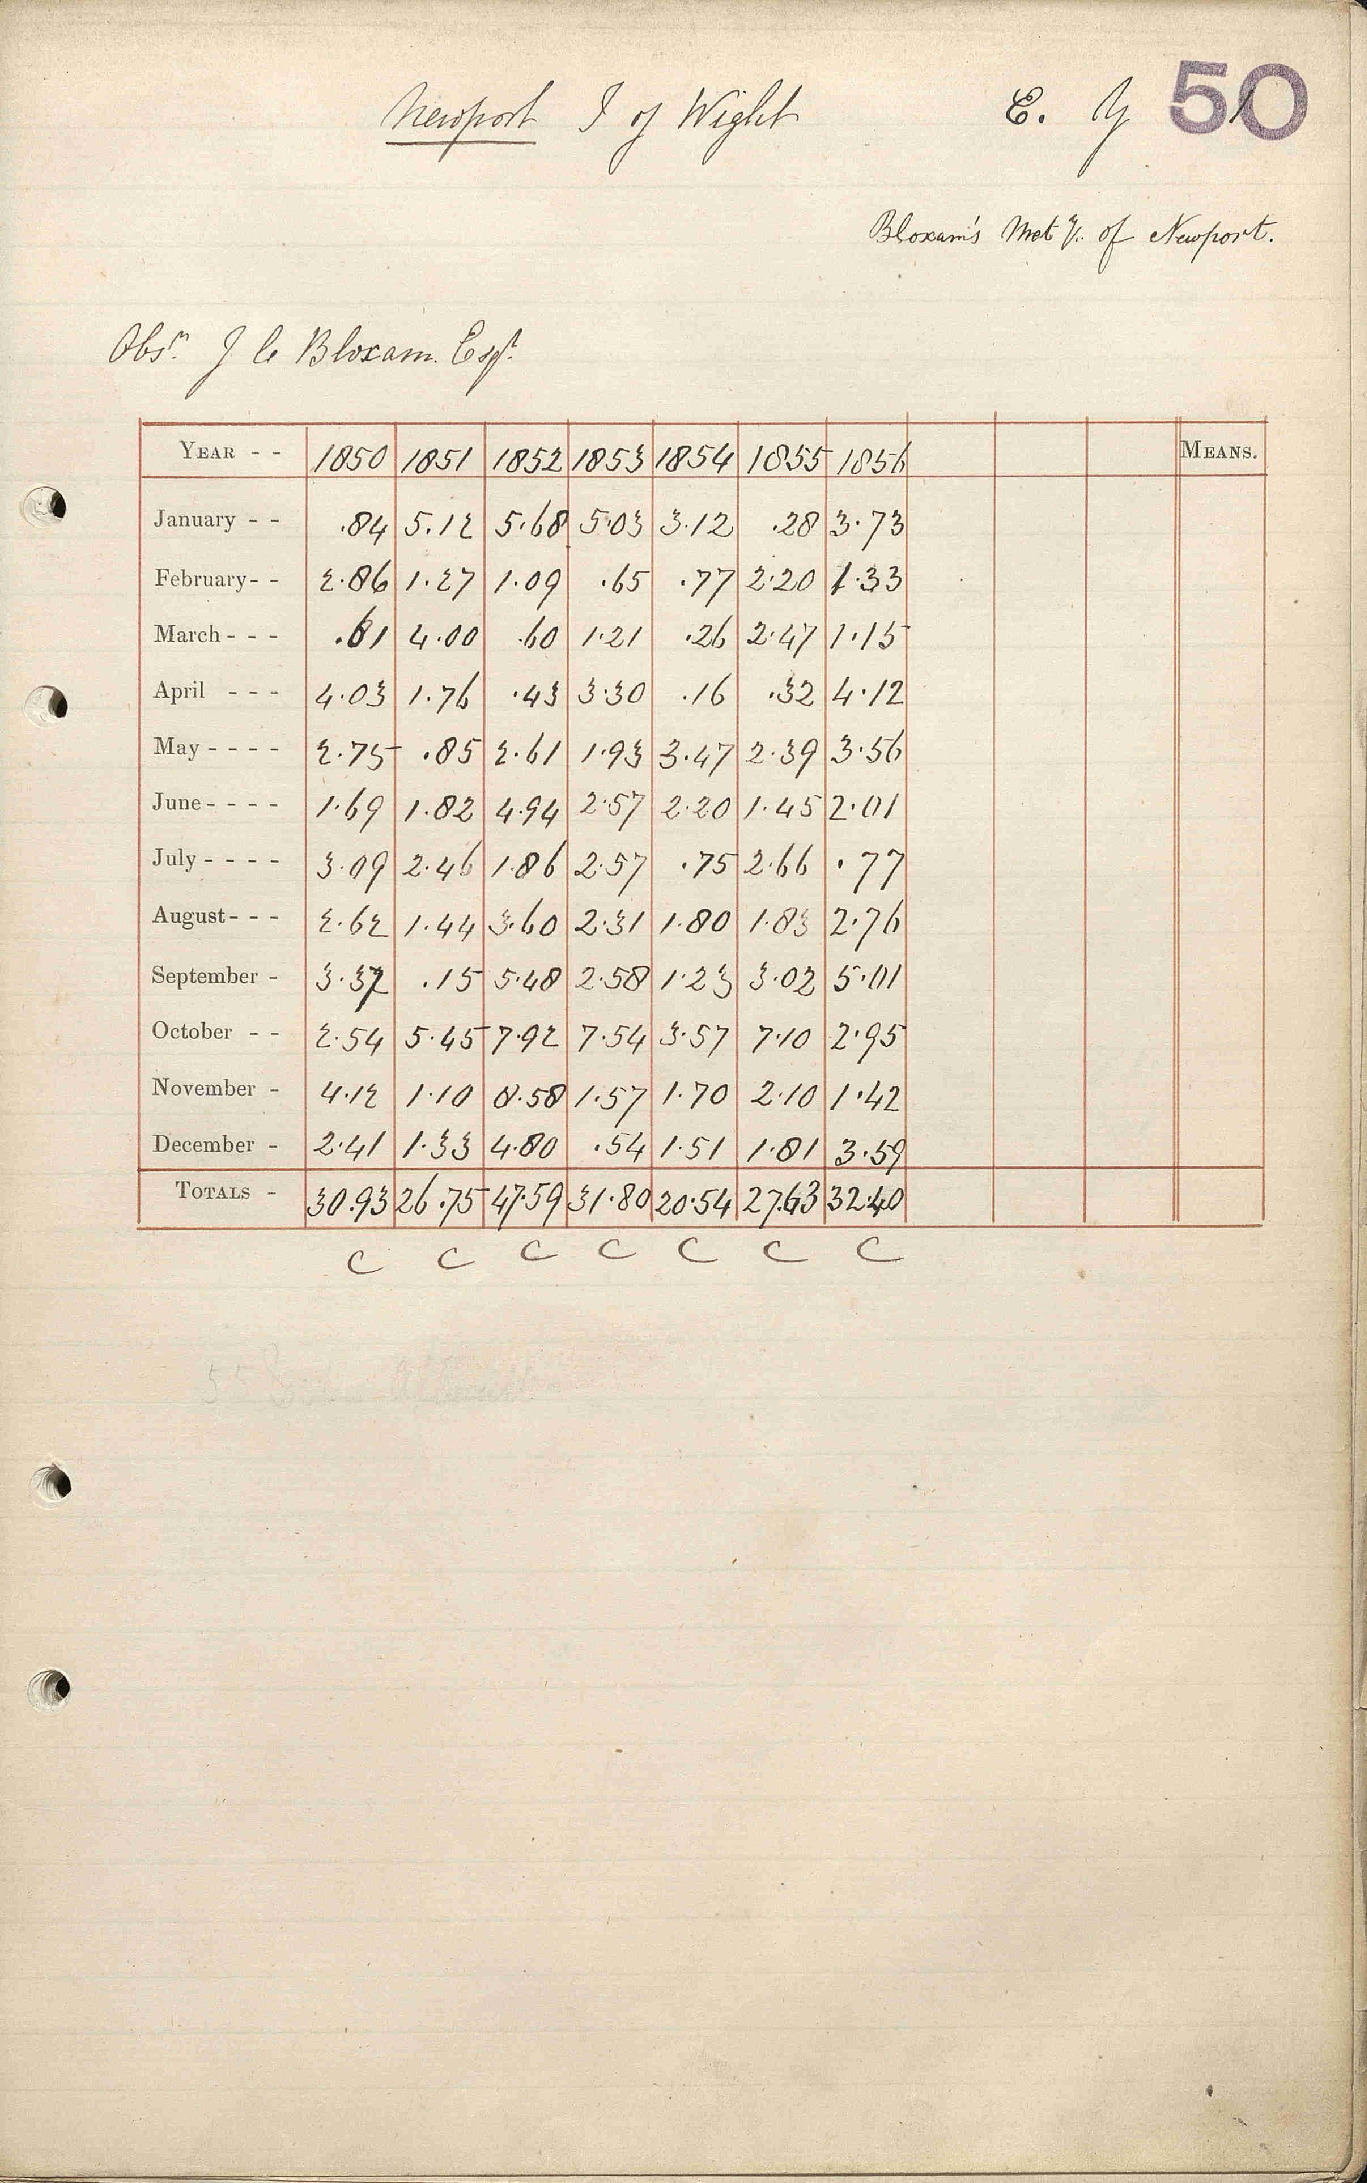 Newport I of Wight E. Y 50
Bloxam's Met y. of Newport.
Obsr. J C Bloxam Esqr.
YEAR - - 1850 1851 1852 1853 1854 1855 1856 MEANS.
January - - .84 5.12 5.68 5.03 3.12 .28 3.73
February - - 2.86 1.27 1.09 .65 .77 2.20 1.33
March - - - .61 4.00 .60 1.21 .26 2.47 1.15
April - - - 4.03 1.76 .43 3.30 .16 .32 4.12
May - - - - 2.75 .85 2.61 1.93 3.47 2.39 3.56
June - - - - 1.69 1.82 4.94 2.57 2.20 1.45 2.01
July - - - - 3.09 2.46 1.86 2.57 .75 2.66 .77
August - - - 2.62 1.44 3.60 2.31 1.80 1.83 2.76
September - 3.37 .15 5.48 2.58 1.23 3.02 5.01
October - - 2.54 5.45 7.92 7.54 3.57 7.10 2.95
November - 4.12 1.10 8.58 1.57 1.70 2.10 1.42
December - 2.41 1.33 4.80 .54 1.51 1.81 3.59
TOTALS - 30.93 26.75 47.59 31.80 20.54 27.63 32.40
C C C C C C C